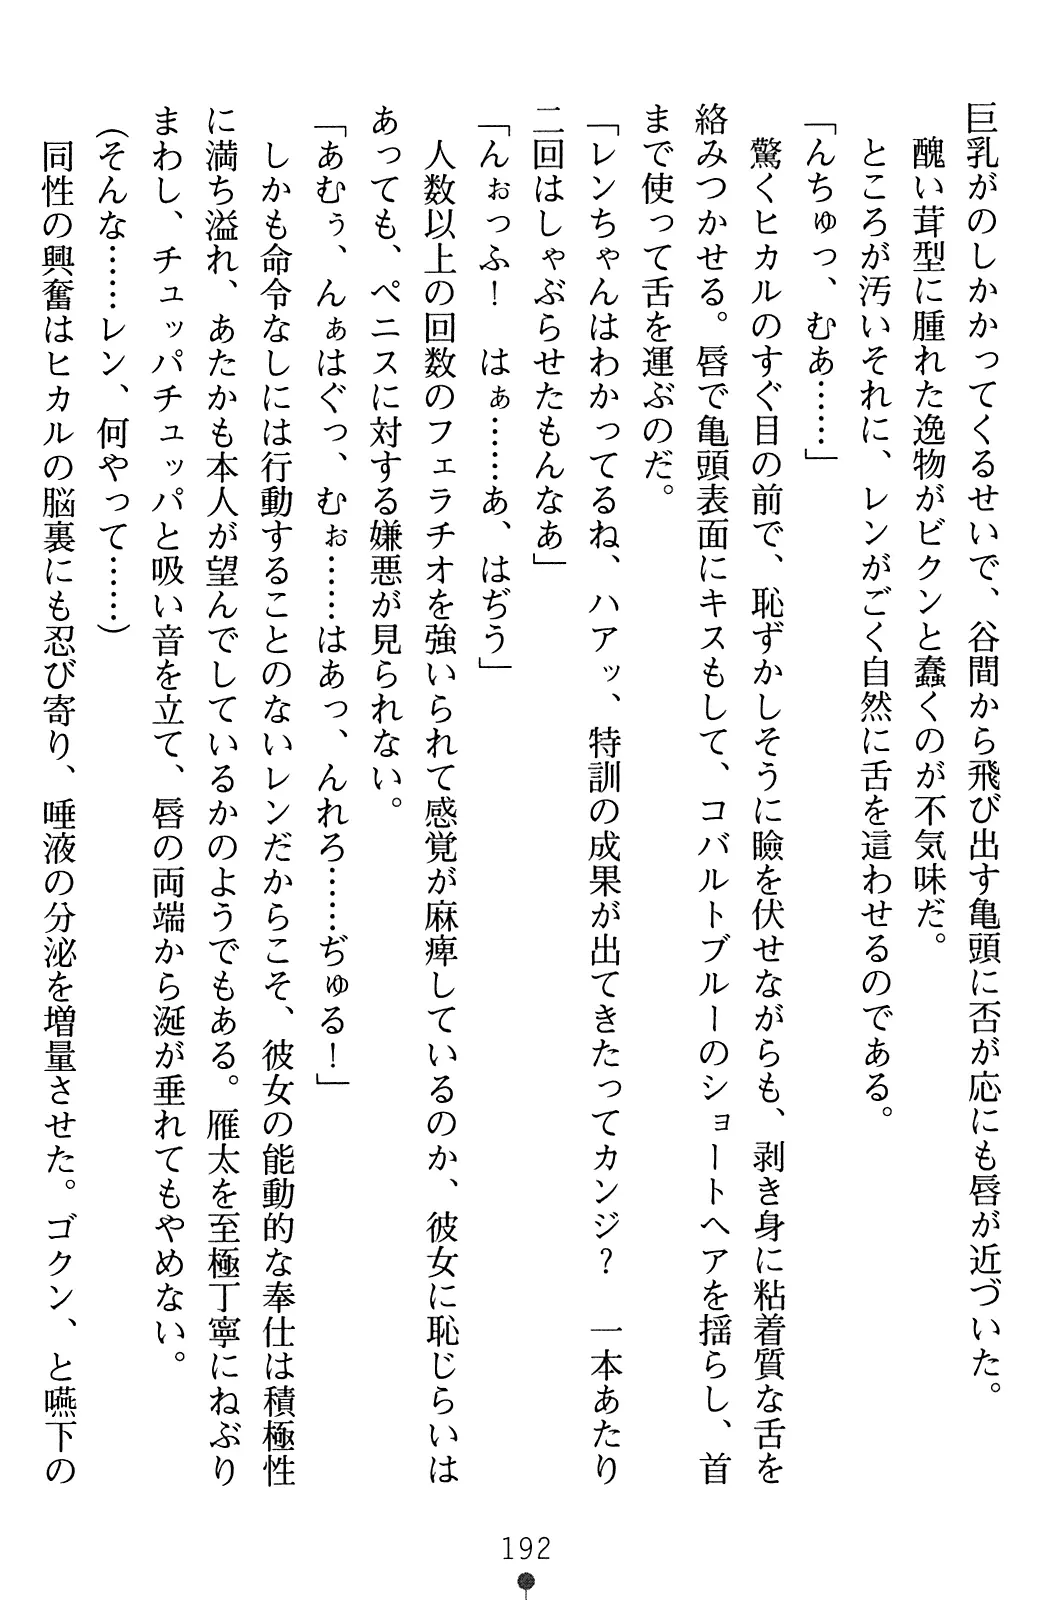 巨乳がのしかかってくるせいで、谷間から飛び出す亀頭に否が応にも唇が近づいた。
醜い茸型に腫れた逸物がビクンと蠢くのが不気味だ。
ところが汚いそれに、レンがごく自然に舌を這わせるのである。
「んちゅっ、むあ……」
驚くヒカルのすぐ目の前で、恥ずかしそうに瞼を伏せながらも、剥き身に粘着質な舌を
絡みつかせる。唇で亀頭表面にキスもして、コバルトブルーのショートヘアを揺らし、首
まで使って舌を運ぶのだ。
「レンちゃんはわかってるね、ハアッ、特訓の成果が出てきたってカンジ？　一本あたり
二回はしゃぶらせたもんなあ」
「んぉっふ！　はぁ……あ、はぢう」
人数以上の回数のフェラチオを強いられて感覚が麻痺しているのか、彼女に恥じらいは
あっても、ペニスに対する嫌悪が見られない。
「あむぅ、んぁはぐっ、むぉ……はあっ、んれろ……ぢゅる！」
しかも命令なしには行動することのないレンだからこそ、彼女の能動的な奉仕は積極性
に満ち溢れ、あたかも本人が望んでしているかのようでもある。雁太を至極丁寧にねぶり
まわし、チュッパチュッパと吸い音を立て、唇の両端から涎が垂れてもやめない。
（そんな……レン、何やって……）
同性の興奮はヒカルの脳裏にも忍び寄り、唾液の分泌を増量させた。ゴクン、と嚥下の
192